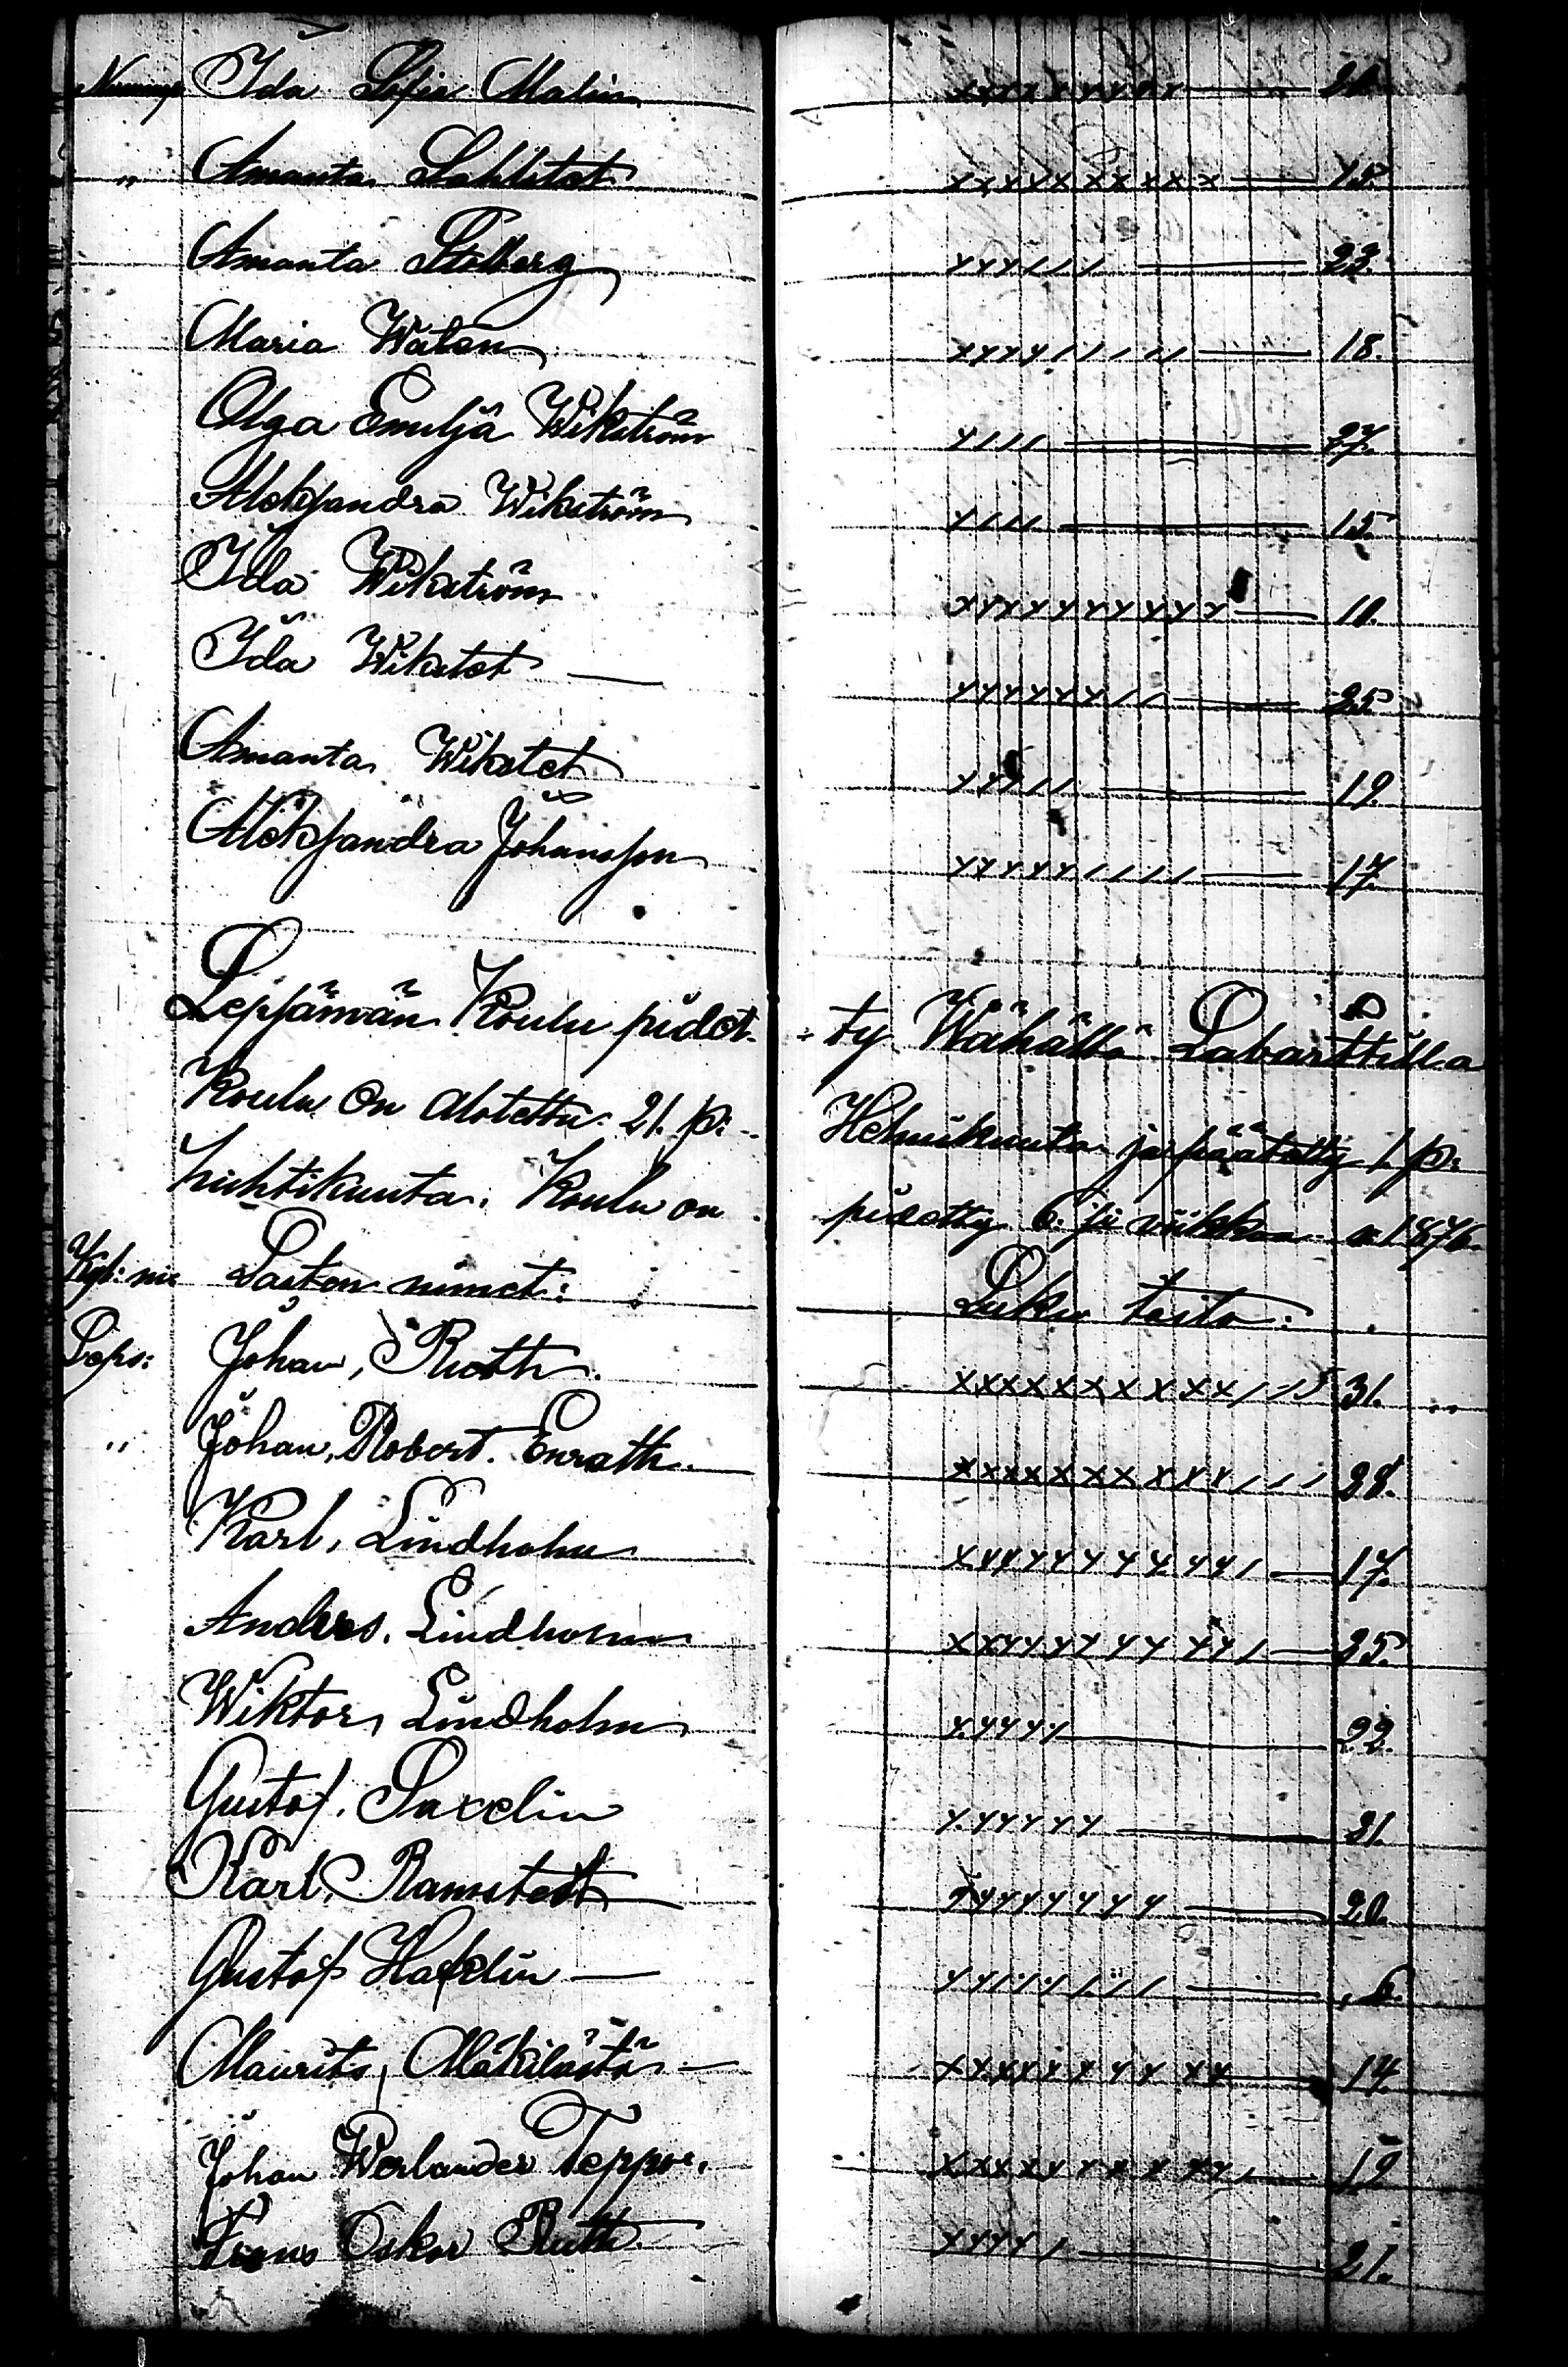 Ida Sofia Malin xxxxxxxxxx
" Amanta Sahlstet xxxxxxxxxxx 15.
Amanta Stolberg xxx/// 23.
Maria Walen xxxx///// 18.
Olga Emiljä Wikström x//// 27.
Aleksandra Wikström x//// 15.
Ida Wikström xxxxxxxxxxx 10.
Ida Wikstet xxxxxxx// 25.
Amanta Wikstet xxx// 19.
Aleksandra Johansson xxxxx//// 17.
Lepjärwän Koulu pidet- ty Wähällä Labarttilla
Koulu on alotettu 21. p: Helmikuuta ja päätetty 1. p:
huhtikuuta. Koulu on pidetty 6. si viikkoa w. 1876.
Kyl: ni: Lasten nimet: Luku taito:
Leps: Johan, Ruoth. 31.
" Johan, Robert. Enrath. 28.
Karl, Lindholm 17.
Anders. Lindholm 25.
Wiktor, Lindholm xxxxx 22.
Gustaf. Saxelin xxxxxx 21.
Karl, Ramstett xxxxxxxx 20.
Gustaf Haxelin
Maurits, Mäkilästä 14.
Johan Werlander Teppo. 19.
Frans Oskar Ruth xxxx/ 21.